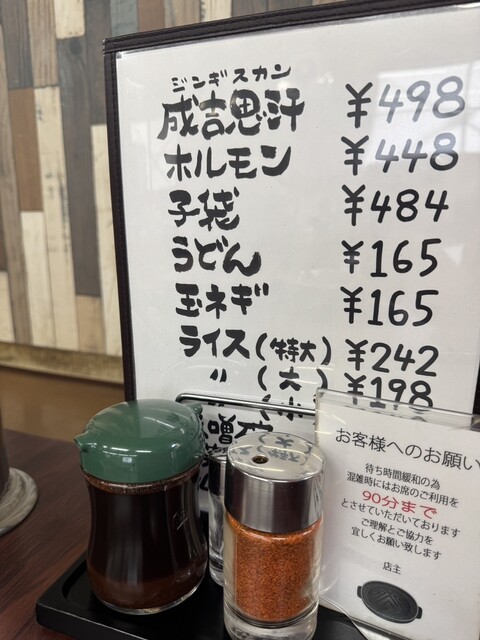 ジンギスカン
成吉思汗 ¥498
ホルモン ¥448
子袋 ¥484
うどん ¥165
玉ネギ ¥165
ライス(特大) ¥242
〃 (大) ¥198
お客様へのお願い
待ち時間緩和の為
混雑時にはお席のご利用を
90分まで
とさせていただいております
ご理解とご協力を
宜しくお願い致します
店主